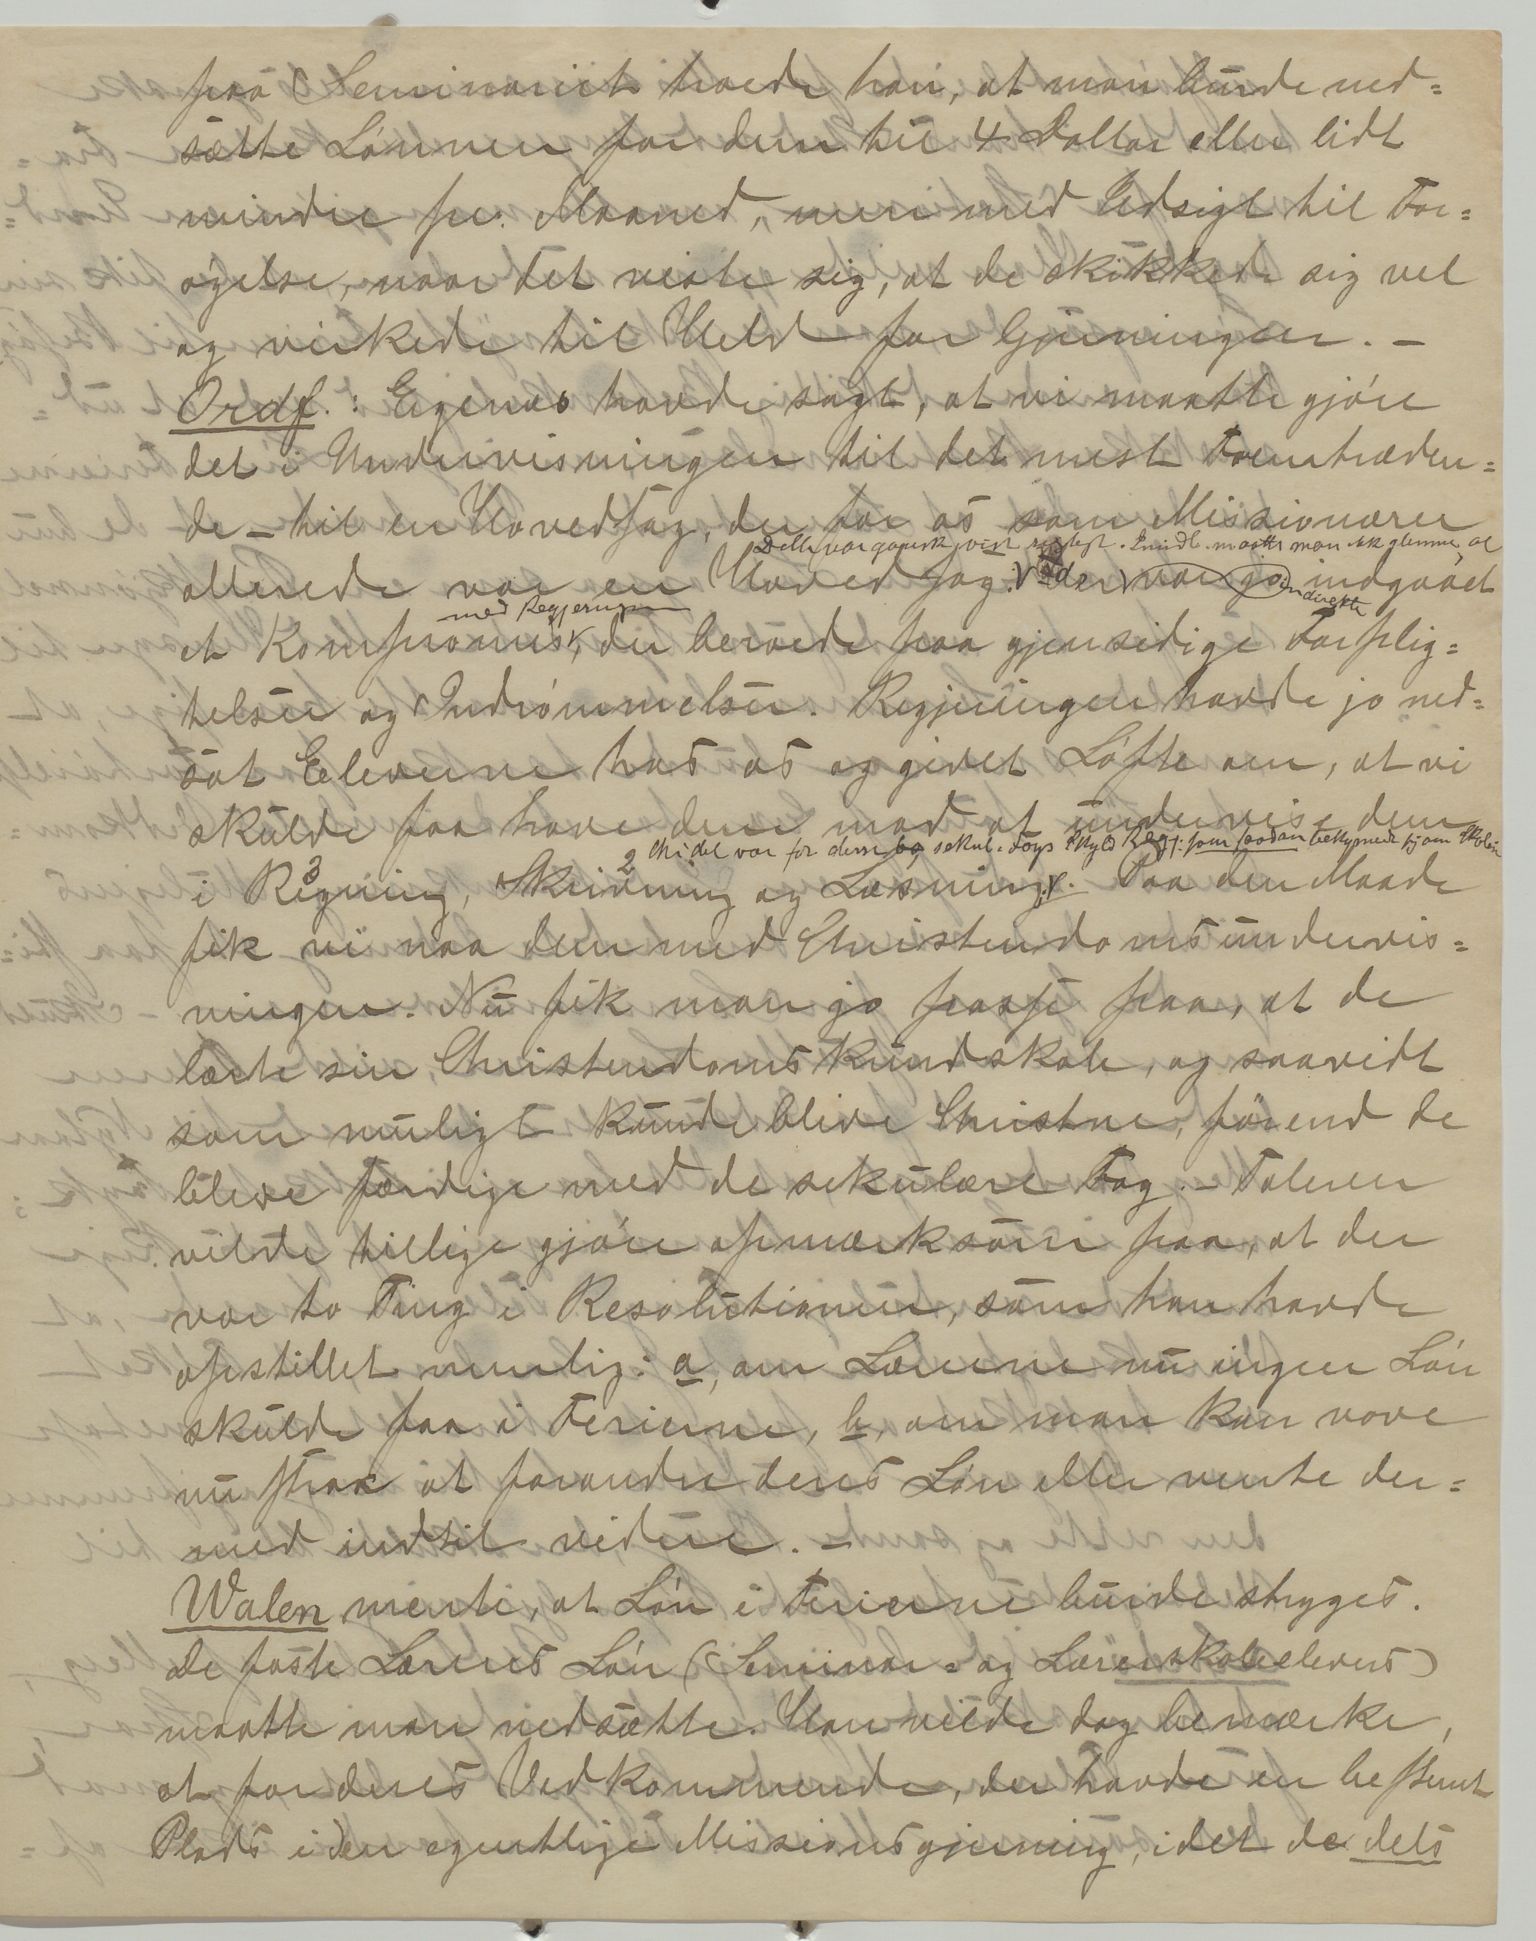 paa Seminariet troede han, at man burde ned-
sætte Lønnen for dem til 4 Dollar eller lidt
mindre pr. Maaned, men med Udsigt til For-
øgelse, naar det viste sig, at de skikkede sig vel
og virkede til Held for Gjerningen. –
Ordf.: Egenæs havde sagt, at vi maatte gjøre
det i Undervisningen til det mest Fremtræden-
de – til en Hovedsag, der for os som Missionærer
Dette var ganske vist rigtigt. Imidl. maatte man ikke glemme, at
allerede var en Hovedsag. der var jo indgaaet
med Regjeringen indirekte
et Kompromis, der beroede paa gjensidige Forplig-
telser og Indrømmelser. Regjeringen havde jo ned-
sat Eleverne hos os og givet Løfte om, at vi
skulde faa have dem mod at undervise dem
thi det var for dem sekul. Fags Skyld Regj. som saadan bekymrede sig om Skolen
i 3 Regning, 2 Skrivning og Læsning. Paa den Maade
fik vi naa dem med Christendomsundervis-
ningen. Nu fik man jo passe paa, at de
lærte sin Christendomskundskab, og saavidt
som muligt kunde blive Christne, førend de
bleve færdige med de sekulære Fag. – Taleren
vilde tillige gjøre opmærksom paa, at der
var to Ting i Resolutionen, som han havde
opstillet nemlig: a, om Lærerne nu ingen Løn
skulde faa i Ferierne, b, om man kan vove
nu strax at forandre deres Løn eller vente der-
med indtil videre. –
Walen mente, at Løn i Ferierne burde stryges.
De faste Læreres Løn (Seminar- og Lærerskoleelevers)
maatte man nedsætte. Han vilde dog bemærke,
at for deres Vedkommende, der havde en bestemt
Plads i den egentlige Missionsgjerning, idet de dels